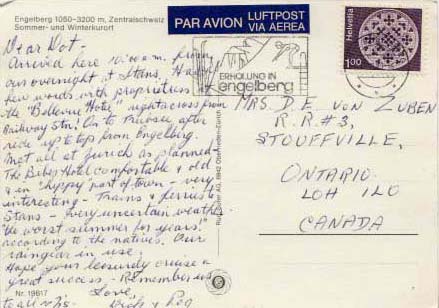 Engelberg 1050–3200 m, Zentralschweiz
Sommer- und Winterkurort
PAR AVION LUFTPOST
VIA AEREA
Helvetia
100
ERHOLUNG IN
engelberg
Dear Dot –
Arrived here 10:00 a.m. from
our overnight at Stans. Had
few words with proprietress
the "Bellevue Hotel" right across from
Railway Stn! On to Trübsee after
ride up to top from Engelberg.
Met all at Zurich as planned.
The Biber Hotel comfortable & old
& in "hippy part of town" – very
interesting – Trains & ferries to
Stans – Very uncertain weather
"the worst summer for years!"
according to the natives. Our
raingear in use.
Hope your leisurely cruise a
great success – Remember us
to all
Love,
& Peg
MRS. D. E. VON ZUBEN
R.R. #3,
STOUFFVILLE,
ONTARIO
L0H 1L0
CANADA
Nr. 19617